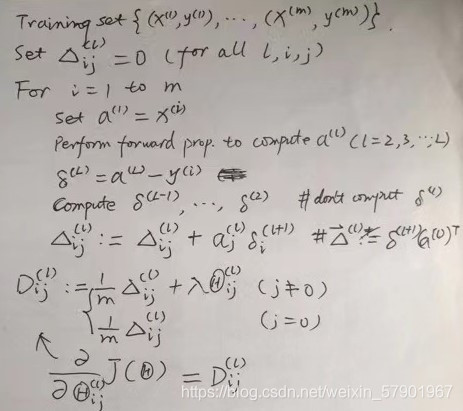 Training set {(x⁽¹⁾, y⁽¹⁾), ⋯, (x⁽ᵐ⁾, y⁽ᵐ⁾)}.
Set Δᵢⱼ⁽ˡ⁾ = 0 (for all l, i, j)
For i = 1 to m
Set a⁽¹⁾ = x⁽ⁱ⁾
Perform forward prop. to compute a⁽ˡ⁾ (l = 2, 3, ⋯, L)
δ⁽ᴸ⁾ = a⁽ᴸ⁾ − y⁽ⁱ⁾
Compute δ⁽ᴸ⁻¹⁾, ⋯, δ⁽²⁾ # don't comput δ⁽¹⁾
Δᵢⱼ⁽ˡ⁾ := Δᵢⱼ⁽ˡ⁾ + aⱼ⁽ˡ⁾ δᵢ⁽ˡ⁺¹⁾ # Δ⁽ˡ⁾ := δ⁽ˡ⁺¹⁾ a⁽ˡ⁾ᵀ
Dᵢⱼ⁽ˡ⁾ := { 1/m Δᵢⱼ⁽ˡ⁾ + λ Θᵢⱼ⁽ˡ⁾ (j ≠ 0)
1/m Δᵢⱼ⁽ˡ⁾ (j = 0)
∂/∂Θᵢⱼ⁽ˡ⁾ J(Θ) = Dᵢⱼ⁽ˡ⁾
https://blog.csdn.net/weixin_57901967